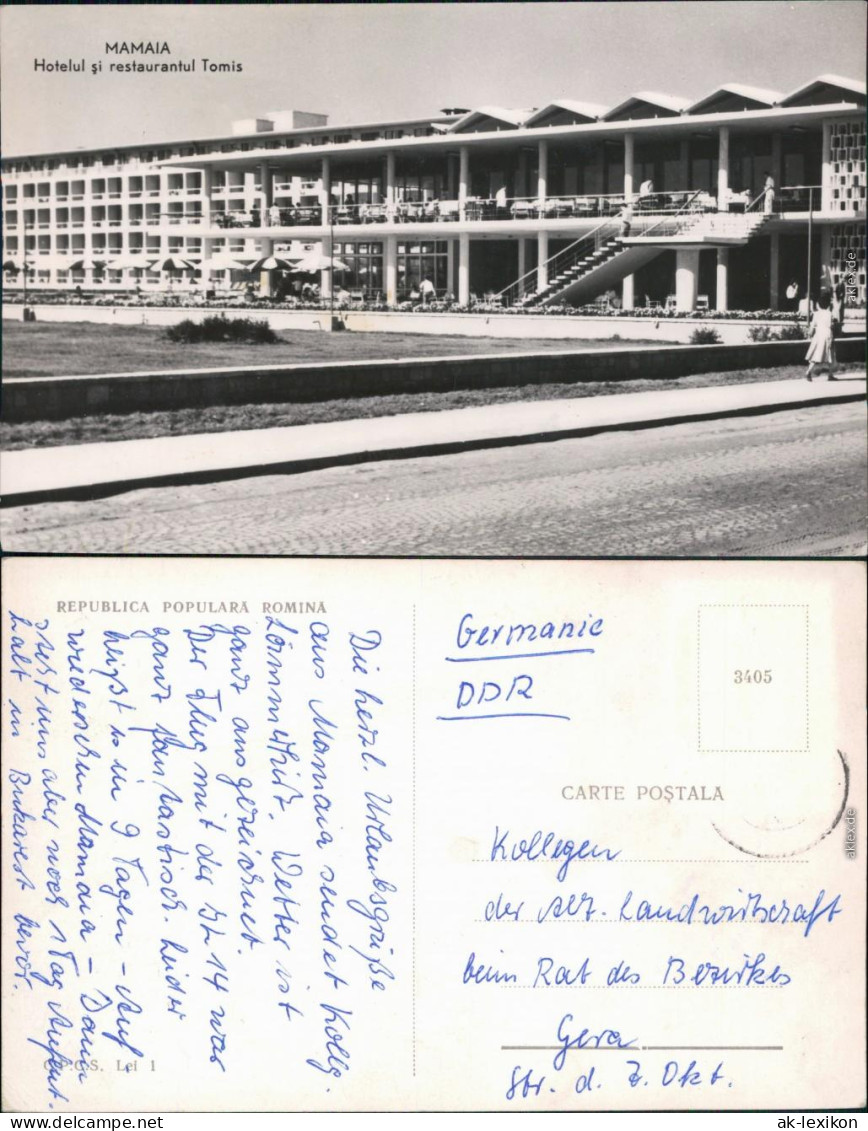 MAMAIA
Hotelul și restaurantul Tomis
REPUBLICA POPULARĂ ROMÎNĂ
Die herzl. Urlaubsgrüße
aus Mamaia sendet Kollg.
Wetter ist
ganz ausgezeichnet.
Der Flug mit der IL 14 war
ganz fantastisch. Leider
heißt es in 9 Tagen - Auf
wiedersehen Mamaia - Dann
steht uns aber noch 1 Tag Aufent-
halt in Bukarest bevor.
C.P.C.S. Lei 1
Germanie
DDR
3405
CARTE POȘTALĂ
Kollegen
der Abt. Landwirtschaft
beim Rat des Bezirkes
Gera
Str. d. 7. Okt.
aklex.de
aklex.de
ak-lexikon